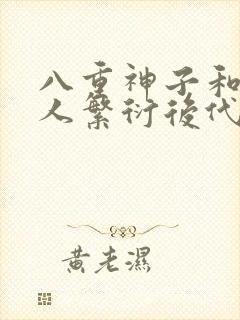 八重神子和
人繁衍後代
黄老濕